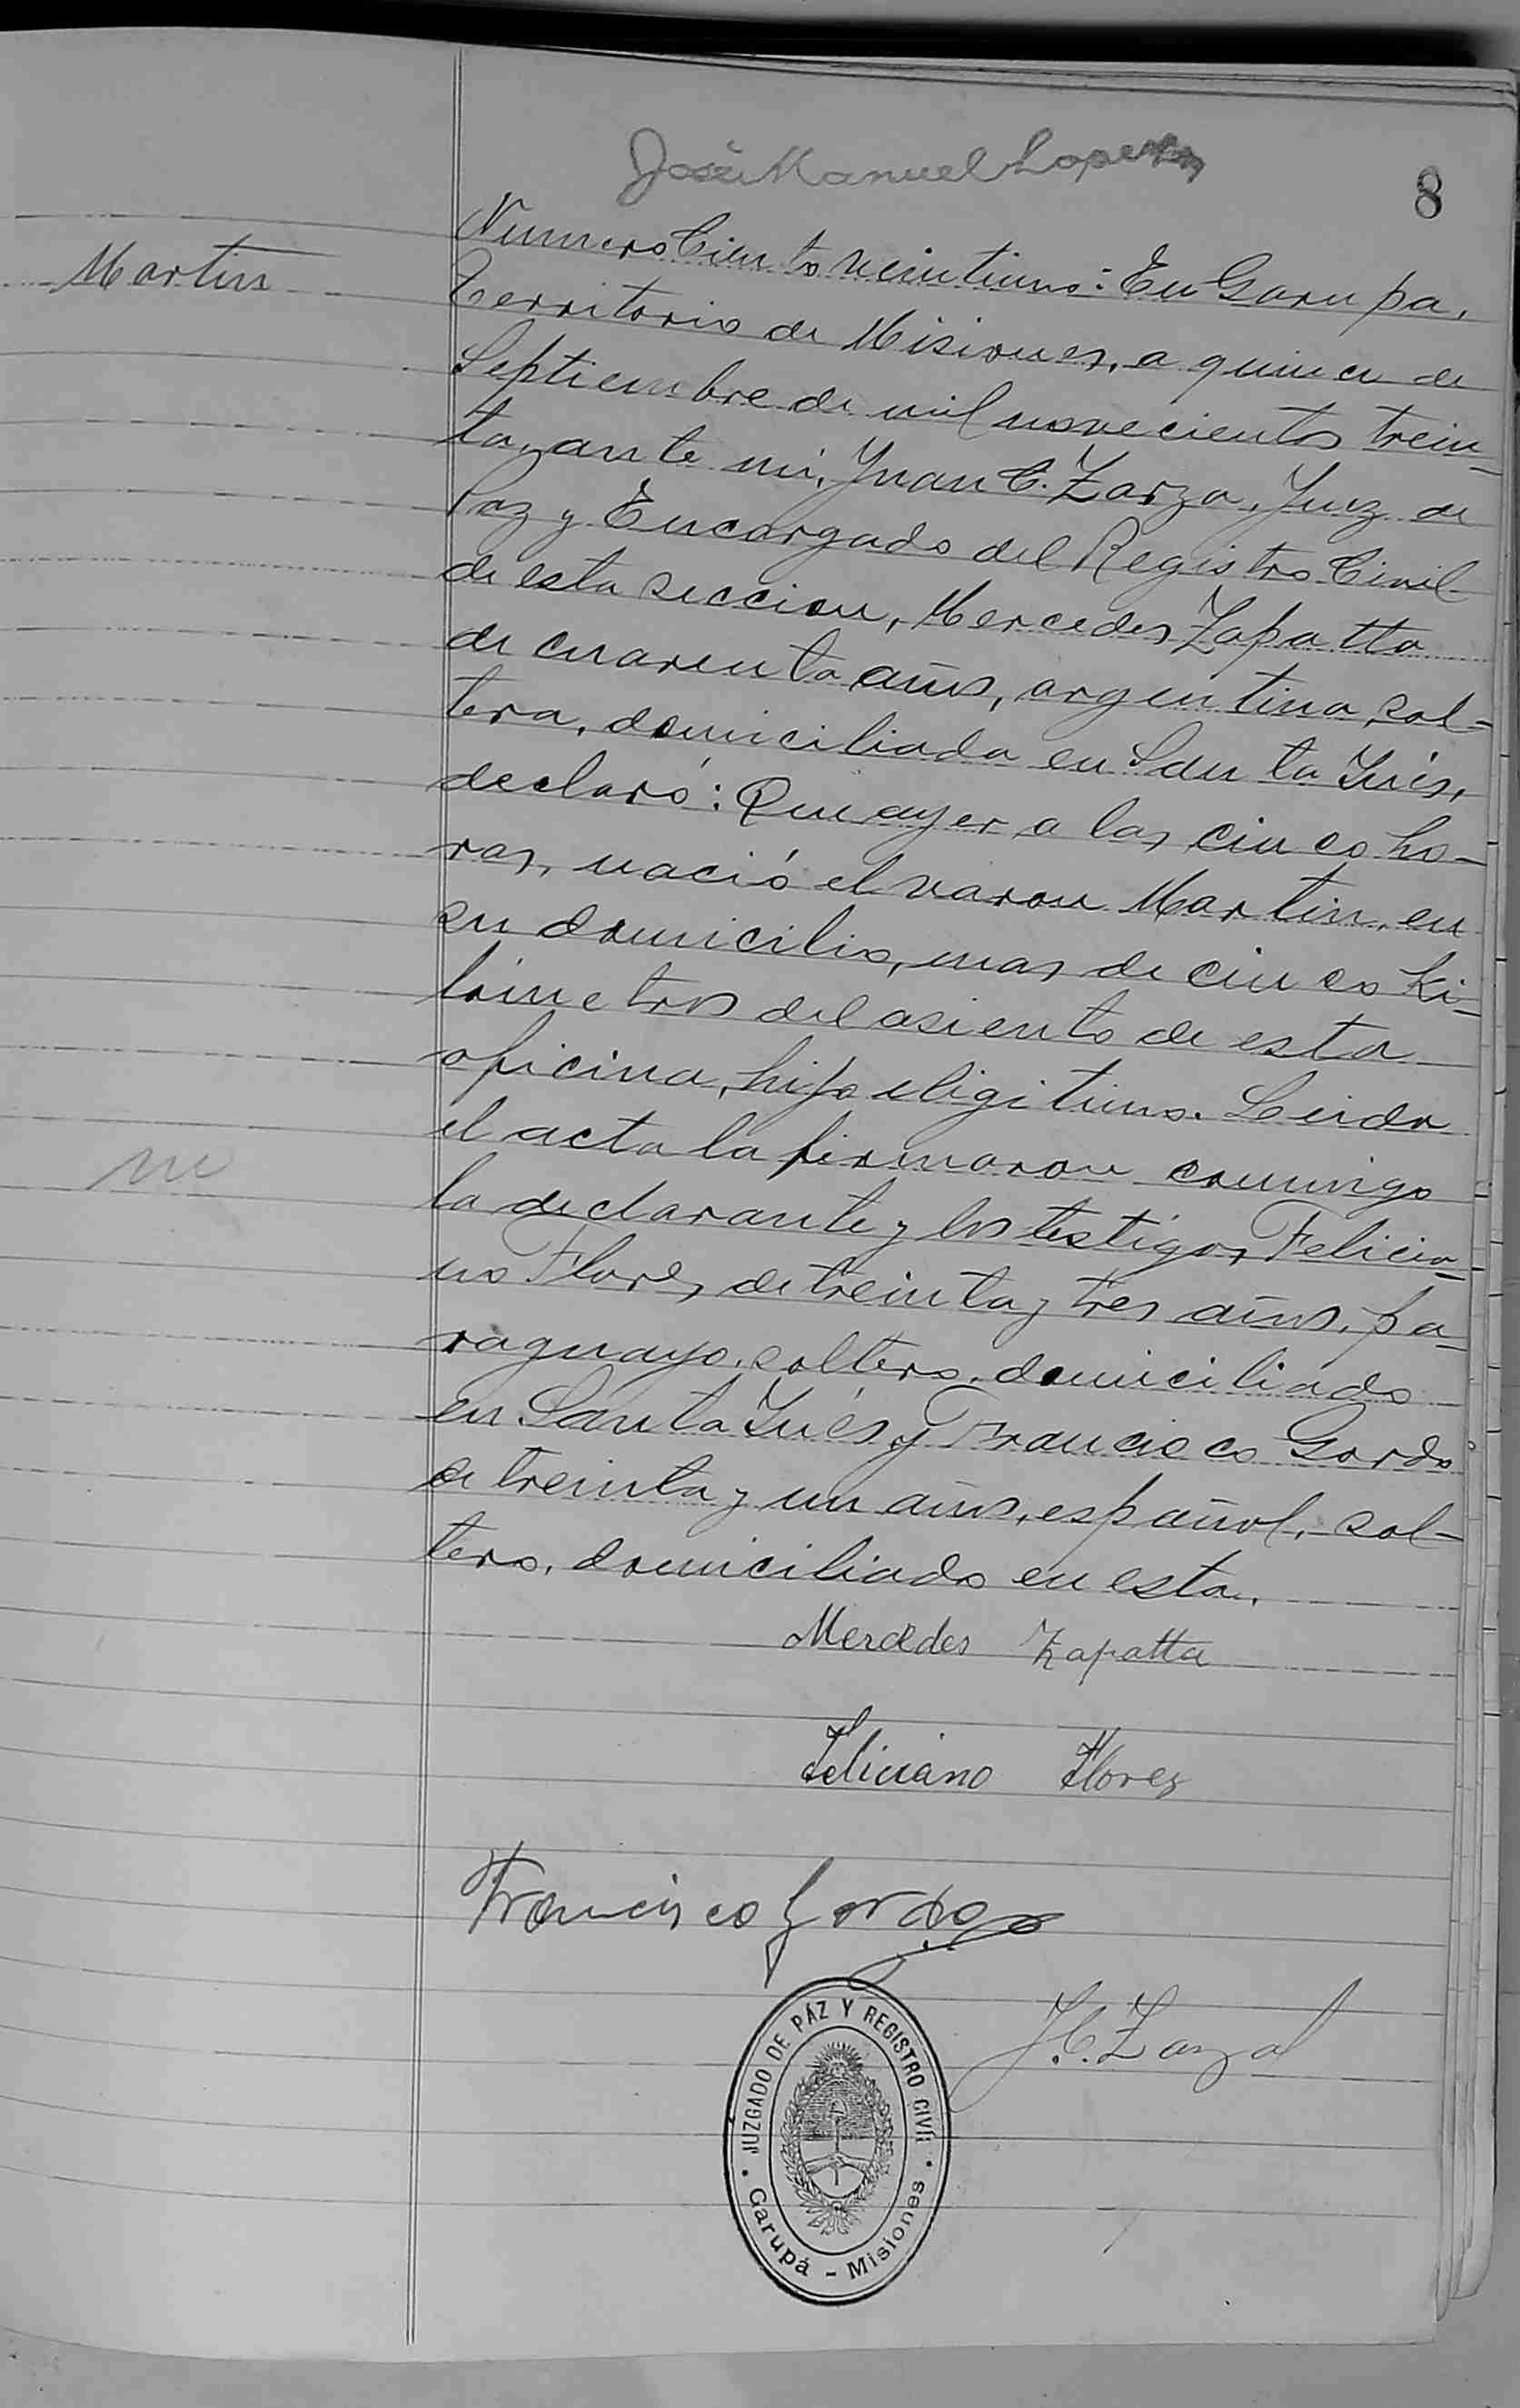 José Manuel Lopez
8
Martin
Numero Ciento veintiuno: En Garupa,
Territorio de Misiones, a quince de
Septiembre de mil novecientos trein-
ta, ante mi, Juan C. Zarza, Juez de
Paz y Encargado del Registro Civil
de esta seccion, Mercedes Zapatta
de cuarenta años, argentina, sol-
tera, domiciliada en Santa Inés,
declaró: Que ayer a las cinco ho-
ras, nació el varon Martin, en
su domicilio, mas de cinco ki-
lómetros del asiento de esta
oficina, hijo iligitimo. Leida
el acta la firmaron conmigo
la declarante y los testigos Felicia-
no Flores, de treinta y tres años, pa-
raguayo, soltero, domiciliado
en Santa Inés y Francisco Gordo
de treinta y un años, español, sol-
tero, domiciliado en esta.
Mercedes Zapatta
Feliciano Flores
Francisco Gordo
J. C. Zarza
JUZGADO DE PÁZ Y REGISTRO CIVIL
Garupá - Misiones